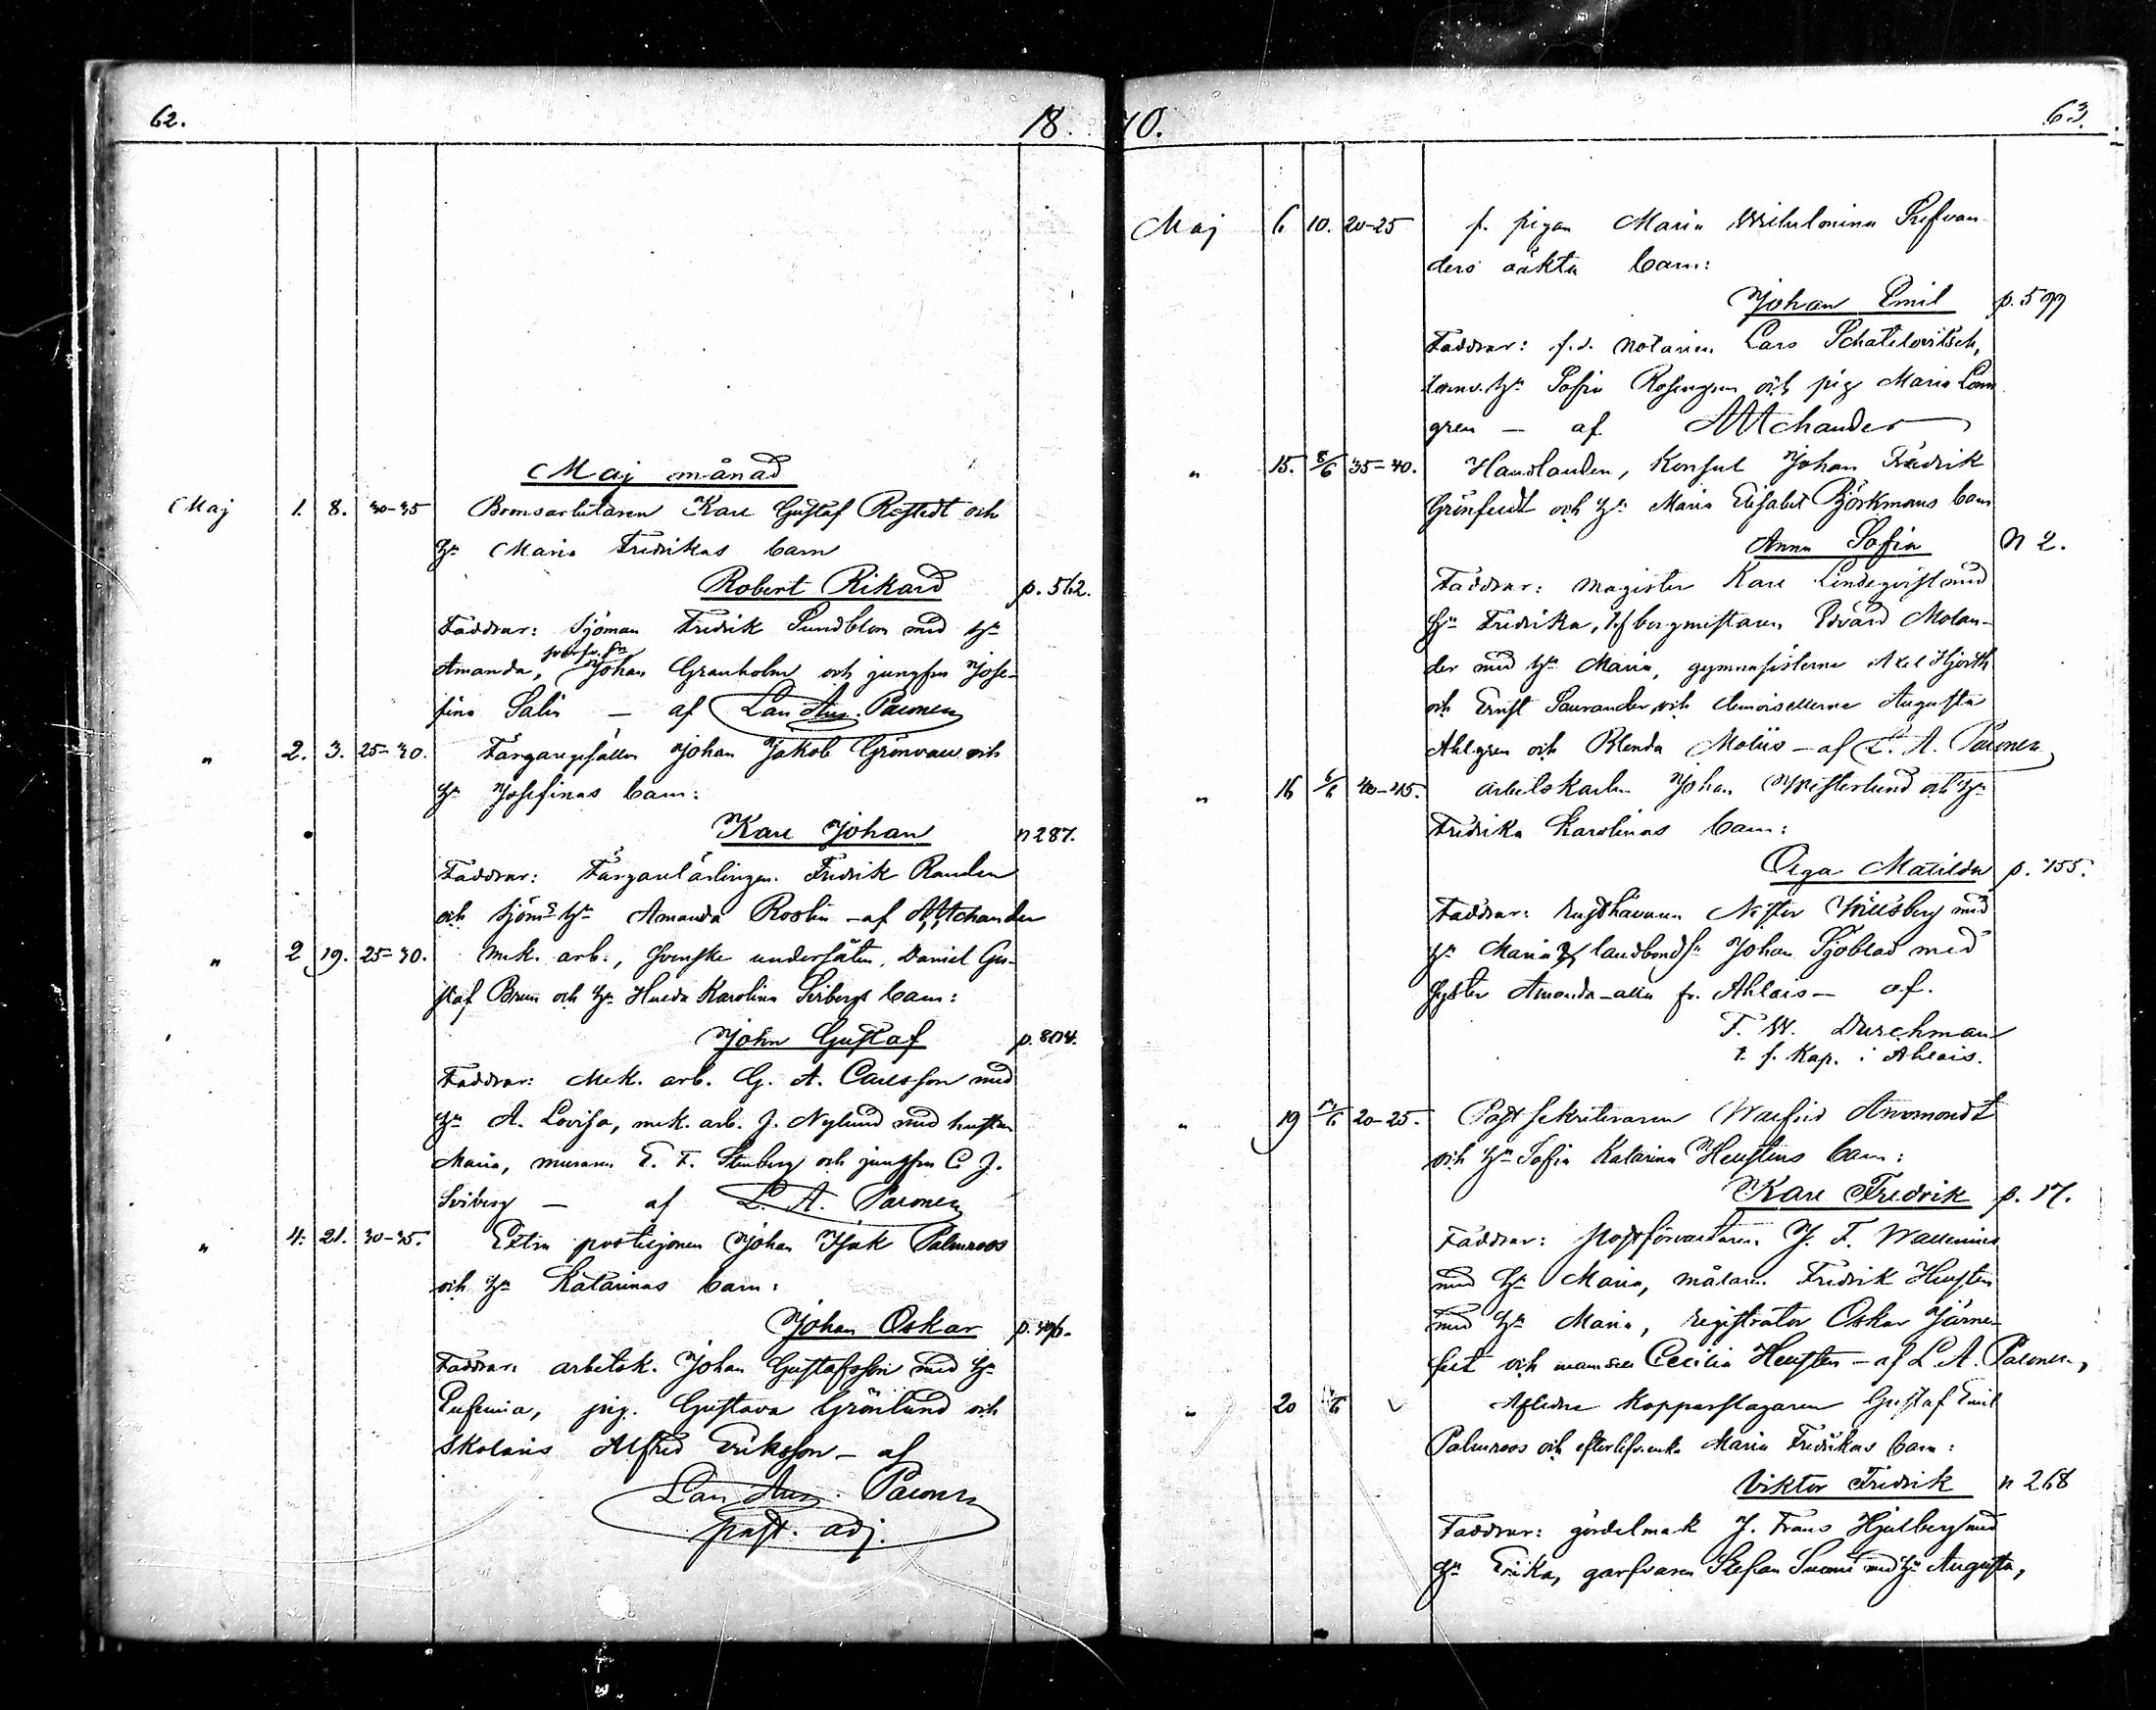 62. 18
Maj månad
Maj 1. 8. 30-35 Bromsarbetaren Karl Gustaf Rostedt och
hu Maria Fredrikas barn
Robert Rikard p. 562.
Faddrar: Sjöman Fredrik Sundblom med hu
Amanda, Johan Granholm och jungfru Jose-
fina Salin — af Lars Aug. Palonen
" 2. 3. 25-30. Färgaregesällen Johan Jakob Grönvall och
hu Josefinas barn:
Karl Johan n 287.
Faddrar: Färgarelärlingen Fredrik Randen
och sjöms hu Amanda Roslin - af
" 2 19. 25-30. Mek. arb., svenske undersåten, Daniel Gu-
staf Brun och hu Hulda Karolina Seibergs barn:
John Gustaf p. 804.
Faddrar: Mek. arb. G. A. Carlsson med
hu A. Lovisa, mek. arb. J. Nylund med hustru
Maria, muraren E. F. Stenberg och jungfru C. J.
— af L. A. Palonen
" 4. 21. 30-35. Extra postiljonen Johan Isak Palmroos
och hu Katarinas barn:
Johan Oskar
Faddrar: arbetsk. Johan Gustafsson med hu
Eufemia, pig. Gustava Grönlund och
skolaris Alfred Eriksson - af
Lars Aug. Palonen
past. adj.
70. 63.
Maj 6 10. 20-25 f. pigan Maria Vilhelmina
ders oäkta barn:
Johan Emil p. 577
Faddrar: f.d. Notarien Lars Schatelowitsch,
hu Sofia Rosengren och pig Maria Lönn
gren — af
" 15. 8/6 35-40. Handlanden, Konsul Johan Fredrik
Grönfeldt och hu Maria Elisabet Björkmans barn
Anna Sofia N 2.
Faddrar: Magister Karl Lindeqvist med
hu Fredrika, bergmästaren Edvard Molan-
der med hu Maria, gymnasisterne Axel Hjorth
och Ernst Saurander och demoisellerne Augusta
Ahlgren och Blenda Moliis - af L. A. Palonen
" 16 6/6 40-45. arbetskarlen Johan Westerlund och hu
Fredrika Karolinas barn:
Olga Matilda p. 155.
Faddrar: Nestor med
hu Maria landbonds Johan Sjöblad med
syster Amanda - alla fr. Ahlais - af.
F. W. Durchman
t. f. Kap. i Ahlais.
" 19 20-25. Postsekreteraren Walfrid Ammondt
och hu Sofia Katarina Hellstens barn:
Karl Fredrik p. 17.
Faddrar: Postförvaltaren J. F. Wallenius
med hu Maria, målaren Fredrik Hellsten
med hu Maria, registrator Oskar Järne-
felt och mamsell Cecilia Hellsten - af L. A. Palonen,
" 20 Aflidne kopparslagaren Gustaf Emil
Palmroos och efterlefv. enka Maria Fredrikas barn:
Viktor Fredrik n 268
Faddrar: gördelmak J. Frans Hjelberg med
hu Erika, garfvaren Stefan Suomi med hu Augusta,